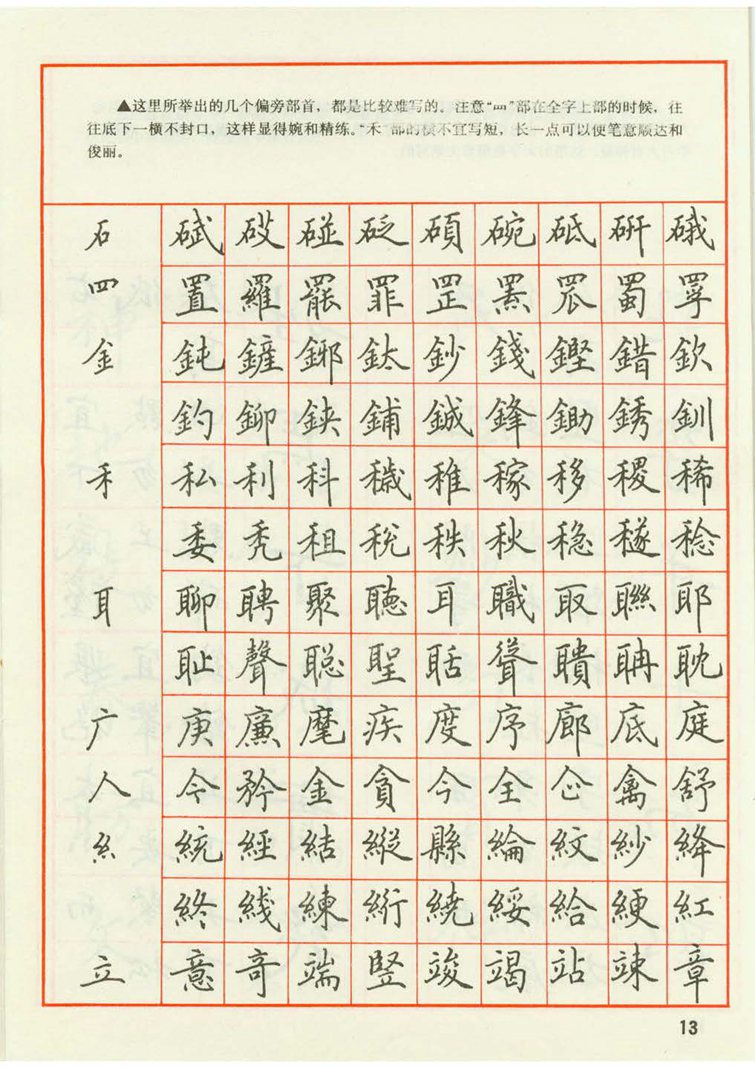 ▲这里所举出的几个偏旁部首,都是比较难写的。注意“罒”部在全字上部的时候,往
往底下一横不封口,这样显得婉和精练。“禾”部的横不宜写短,长一点可以使笔意顺达和
俊丽。
石 碔 碰 砭 碩 碗 砥 硏 硪
四 置 羅 罷 罪 罡 罴 罛 蜀 罦
金 鈍 鏟 鎯 鈦 鈔 錢 鏗 錯 欽
釣 鉚 鋏 鋪 鋮 鋒 鋤 銹 釧
禾 私 利 科 穢 稚 稼 移 稷 稀
委 秃 租 税 秩 秋 稳 穟 稔
耳 聊 聘 聚 聴 耳 職 取 聯 耶
耻 聲 聡 聖 聒 聳 聵 聃 耽
广 庚 廉 麾 疾 度 序 廊 底 庭
人 令 矜 金 貪 今 全 企 禽 舒
糹 統 經 結 縱 縣 綸 紋 紗 絳
終 綫 練 絎 繞 綏 給 綆 紅
立 意 竒 端 竪 竣 竭 站 竦 章
13